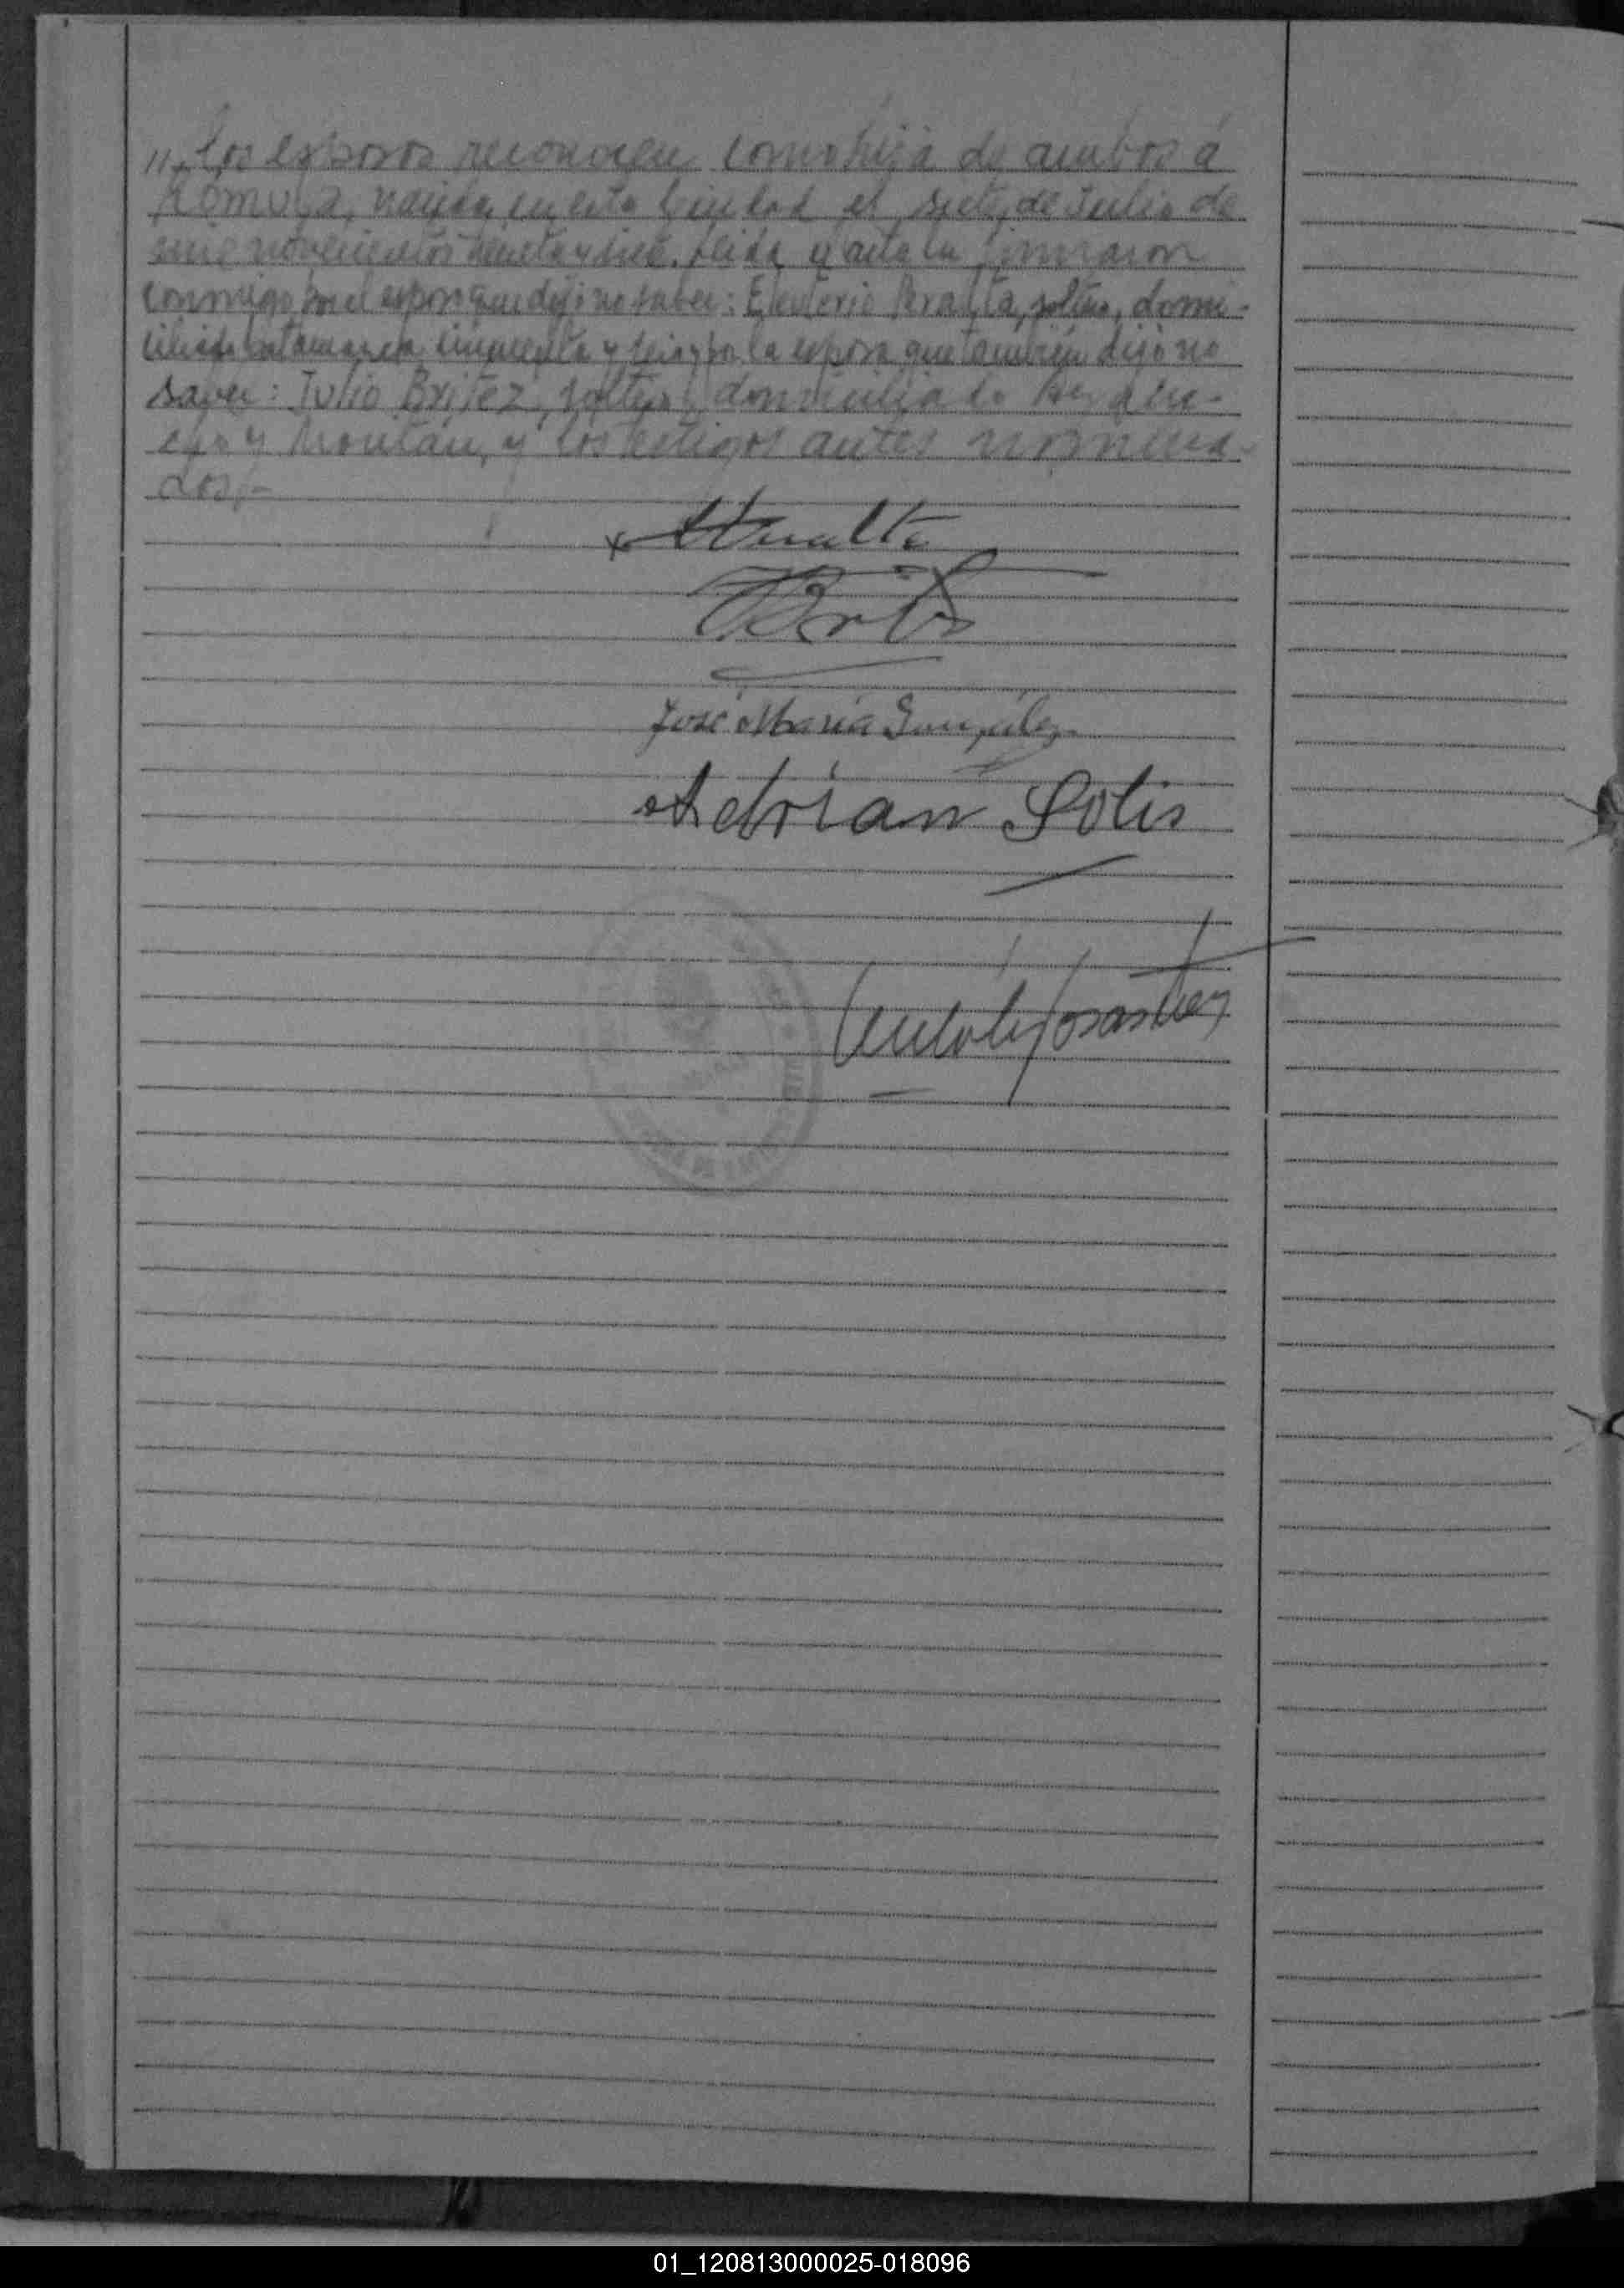 "Los esposos reconocen como hija de ambos á
Rómula, nacida en esta Ciudad el siete de Julio de
mil novecientos treinta y seis. Leida el acta la firmaron
conmigo por el esposo que dijo no saber: Eleuterio Peralta, soltero, domi-
ciliado Catamarca cincuenta y seis y por la esposa que también dijo no
saber: Julio Britez, soltero, domiciliado
y Montán, y los testigos antes nombra-
dos.-
Peralta
JBritez
José María González
Adrian Solis
01_120813000025-018096